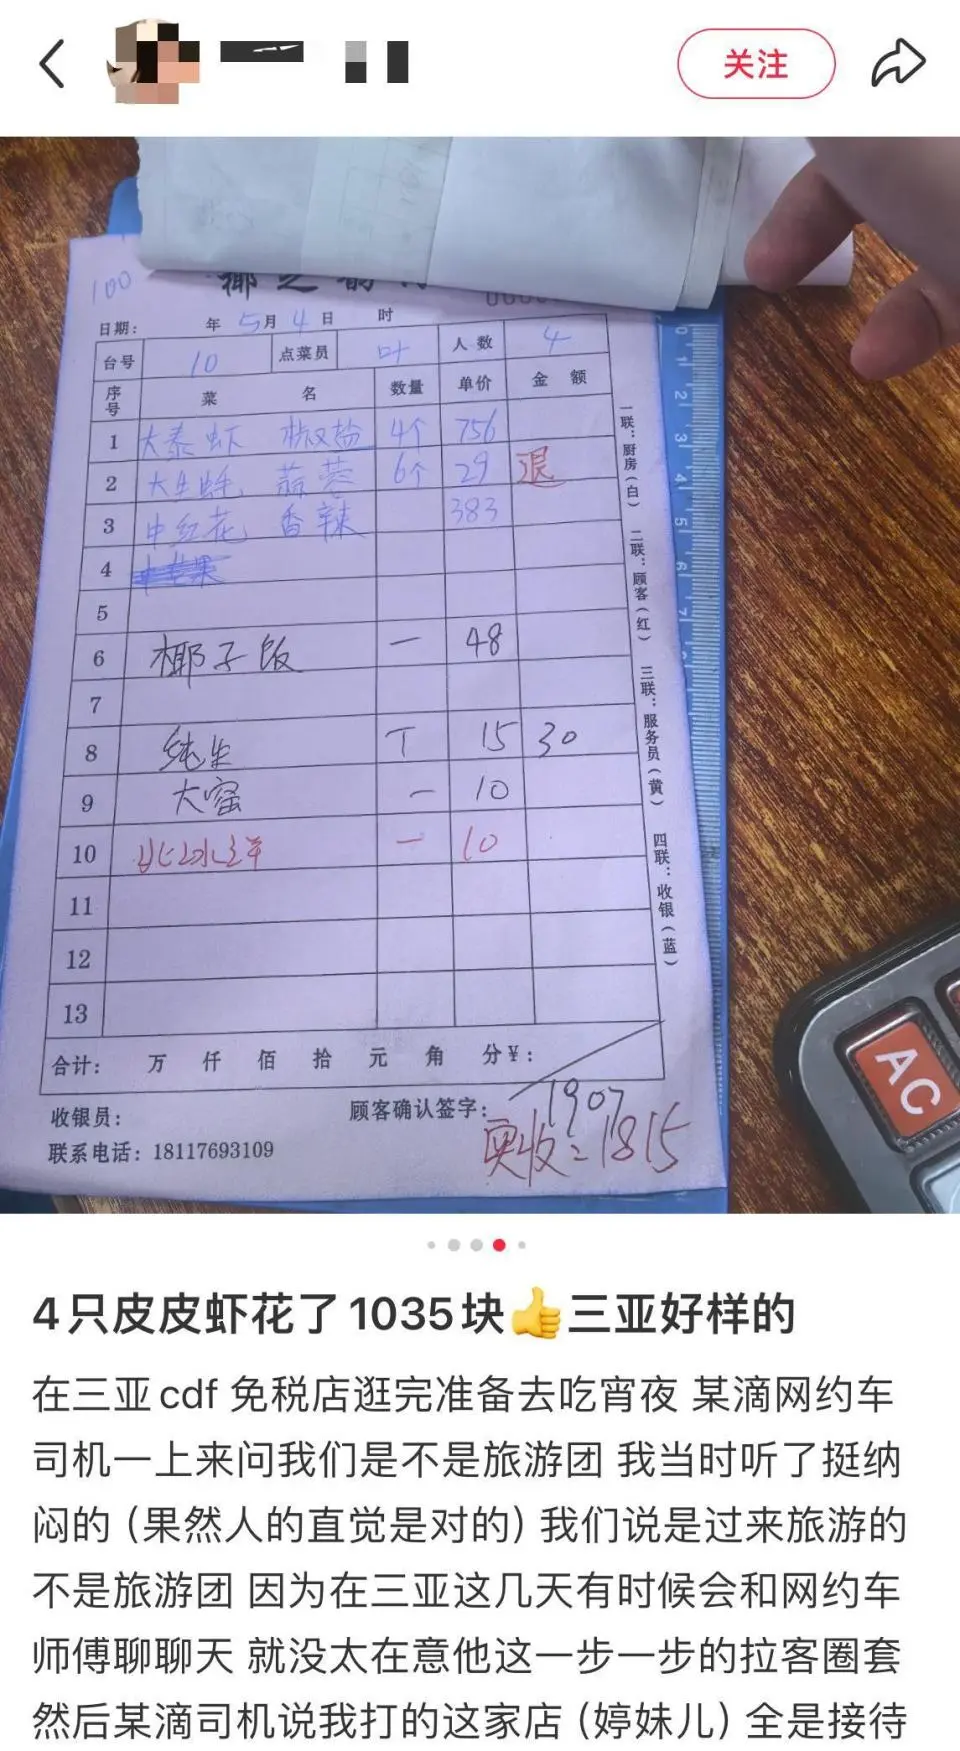 关注
100
椰之韵
日期: 年 5月 4日 时
台号 10 点菜员 叶 人数 4
序号 菜名 数量 单价 金额
1 大泰虾 椒盐 4个 756
2 大生蚝 蒜蓉 6个 29 退
3 中红花 香辣 383
4
5
6 椰子饭 一 48
7
8 纯生 T 15 30
9 大窑 一 10
10 北冰洋 一 10
11
12
13
合计: 万 仟 佰 拾 元 角 分¥:
1907
收银员: 顾客确认签字:
实收=1815
联系电话: 18117693109
一联:厨房(白) 二联:顾客(红) 三联:服务员(黄) 四联:收银(蓝)
0 1 2 3 4 5 6 7
AC
4只皮皮虾花了1035块👍三亚好样的
在三亚cdf 免税店逛完准备去吃宵夜 某滴网约车
司机一上来问我们是不是旅游团 我当时听了挺纳
闷的 (果然人的直觉是对的) 我们说是过来旅游的
不是旅游团 因为在三亚这几天有时候会和网约车
师傅聊聊天 就没太在意他这一步一步的拉客圈套
然后某滴司机说我打的这家店 (婷妹儿) 全是接待